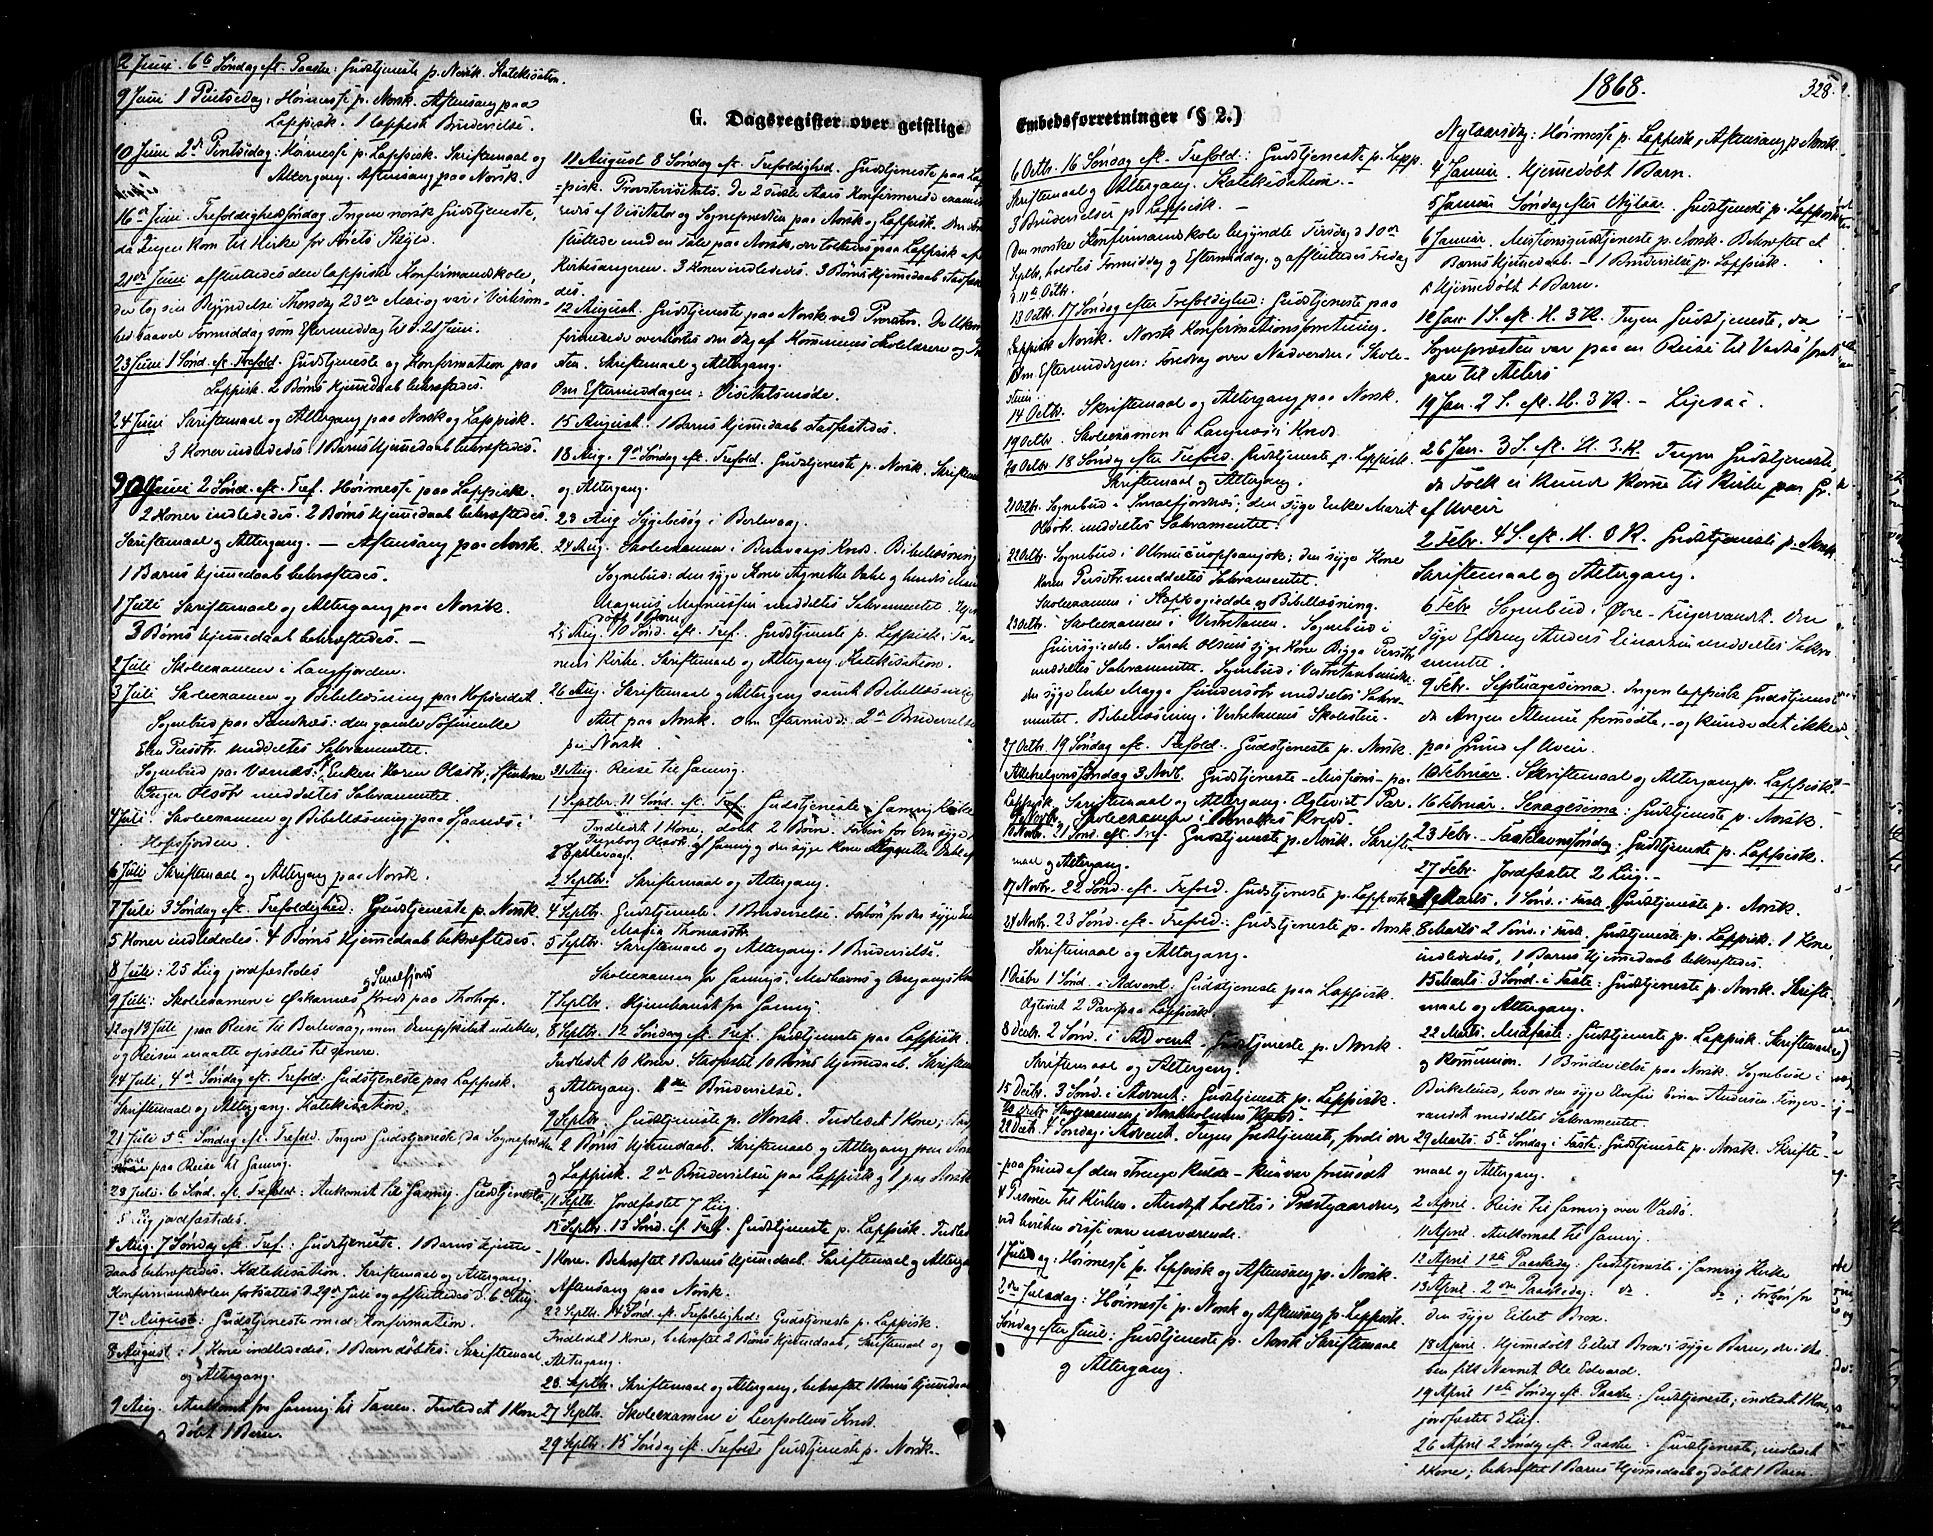 2 Juni. 6te Søndag eft. Paaske: Gudstjeneste p. Norsk. Katekisation.
9 Juni 1 Pintsedag: Høimesse p. Norsk. Aftensang paa
Lappisk. 1 lappisk Brudevielse.
G. Dagsregister over geistlige
10 Juni 2d Pintsedag: Høimesse p. Lappisk. Skriftemaal og
Altergang. Aftensang paa Norsk.
16de Juni. Trefoldighedssøndag. Ingen norsk Gudstjeneste,
da Ingen kom til Kirke for
21de Juni afsluttedes den lappiske Konfirmandskole,
der tog sin Begyndelse Thorsdag 23de Mai og var i Virksom-
hed baade Formiddag som Eftermiddag til d. 21 Juni.
23 Juni 1 Sønd. eft. Trefold. Gudstjeneste og Konfirmation paa
Lappisk. 2 Børns Hjemmedaab bekræftedes.
24 Juni Skriftemaal og Altergang paa Norsk og Lappisk.
3 Koner indledes. 1 Barns Hjemmedaab bekræftedes.
30 Juni 2 Sønd. eft. Tref. Høimesse paa Lappisk.
2 Koner indlededes. 2 Børns Hjemmedaab bekræftedes.
Skriftemaal og Altergang. — Aftensang paa Norsk.
1 Barns Hjemmedaab bekræftedes.
1 Juli Skriftemaal og Altergang paa Norsk.
3 Børns Hjemmedaab bekræftedes. —
2 Juli Skoleexamen i Langfjorden.
3 Juli Skoleexamen og Bibellæsning paa Hopseidet.
Sognebud paa
Elen Persdtr. meddeltes Sakramentet.
Sognebud paa Værnes: Enken Karen Olsdtr;
Inger Olsdtr meddeltes Sakramentet.
4 Juli: Skoleexamen og Bibellæsning paa
Hopsfjorden.
6 Juli Skriftemaal og Altergang paa Norsk.
7 Juli 3 Søndag eft. Trefoldighed: Gudstjeneste p. Norsk.
5 Koner indlededes. 4 Børns Hjemmedaab bekræftedes.
8 Juli: 25 Lig jordfæstedes
9 Juli: Skoleexamen i Kreds paa
12 og 13 Juli paa Reise til Berlevaag, men Dampskibet udeblev,
og Reisen maatte opsættes til senere.
14 Juli, 4de Søndag eft. Trefold: Gudstjeneste paa Lappisk.
Skriftemaal og Altergang. Katekisation.
21 Juli 5te Søndag eft. Trefold. Ingen Gudstjeneste, da Sognepræsten
var paa Reise til Gamvig.
28 Juli. 6 Sønd. eft. Trefold: Ankomst til Gamvig. Gudstjeneste.
5 Lig jordfæstedes.
4 Aug. 7 Søndag eft. Tref.: Gudstjeneste. 1 Barns Hjemme-
daab bekræftedes. Katekisation. Skriftemaal og Altergang.
Konfirmandskolen fortsattes d. 29de Juli og afsluttedes d. 6te Aug
7de August: Gudstjeneste med Konfirmation.
8 August: 1 Kone indlededes, 1 Barn døbtes. Skriftemaal
og Altergang.
9 Aug. Ankomst fra Gamvig til Tanen. Indledet 1 Kone
døbt 1 Barn.
11 August 8 Søndag eft. Trefoldighed. Gudstjeneste paa Lap-
pisk. Provstevisitats. De 2 sidste Aars Konfirmerede exami-
neredes af Visitator og Sognepræsten paa Norsk og Lappisk. Den
sluttede med en Tale paa Norsk, der tolkedes paa Lappisk af
Kirkesangeren. 3 Koner indlededes. 3 Børns Hjemmedaab stadfæste-
des.
12 August. Gudstjeneste paa Norsk ved Provsten. De Ukon-
firmerede overhørtes den Dag af Kommunens Skolelærere og
sten. Skriftemaal og Altergang.
Om Eftermiddagen: Visitatsmøde.
15 August. 1 Barns Hjemmedaab stadfæstedes.
18 Aug. 9de Søndag eft. Trefold. Gudstjeneste p. Norsk. Skriftem
og Altergang.
23 Aug Sygebesøg i Berlevaag.
24 Aug. Skoleexamen i Berlevaags Kreds. Bibellæsning
Sognebud: den syge Kone Agnethe Dahl og hendes Mand
Magnus Magnussen meddeltes Sakramentet.
døbt 1 Barn
25 Aug. 10 Sønd. eft. Tref. Gudstjeneste p. Lappisk i Ta-
nens Kirke. Skriftemaal og Altergang. Katekisation.
26 Aug. Skriftemaal og Altergang samt Bibellæsning
Alt paa Norsk. Om Eftermidd: 2de Brudevielse
paa Norsk.
31 Aug. Reise til Gamvig.
1 Septbr. 11 Sønd. eft. Tref. Gudstjeneste i Gamvig Kirke
Indledet 1 Kone; døbt 2 Børn. Forbøn for den syge
Ingeborg Olsdtr. af Gamvig og den syge Kone Agnethe Dahl af
Berlevaag.
2 Septbr: Skriftemaal og Altergang.
4 Septbr. Gudstjeneste. 1 Brudevielse. Forbøn for den syge
Maria Thomasdtr.
5 Septbr. Skriftemaal og Altergang. 1 Brudevielse.
Skoleexamen for Gamvigs, Mehavns og Omgangs Kreds
7 Septbr. Hjemkomst fra Gamvig
8 Septbr. 12 Søndag eft. Tref. Gudstjeneste paa Lappisk.
Indledt 10 Koner. Stadfæstet 10 Børns Hjemmedaab. Skriftem
og Altergang. Brudevielse.
9 Septbr: Gudstjeneste p. Norsk. Indledet 1 Kone;
2 Børns Hjemmedaab. Skriftemaal og Altergang paa Norsk
og Lappisk. 2de Brudevielser paa Lappisk og 1 paa Norsk
11 Septbr. Jordfæstet 7 Lig.
15 Septbr. 13 Sønd. ef. Tref. Gudstjeneste p. Lappisk. Indledet
1 Kone. Bekræftet 1 Barns Hjemmedaab. Skriftemaal og Altergang
Aftensang paa Norsk.
22 Septbr. 14 Sønd. eft. Trefoldighed: Gudstjeneste p. Lappisk.
Indledet 1 Kone, bekræftet 2 Børns Hjemmedaab, Skriftemaal og
Altergang.
23. Septbr. Skriftemaal og Altergang, bekræftet 1 Barns Hjemmedaab
27 Septbr. Skoleexamen i Leerpollens Kreds.
29 Septbr. 15 Søndag eft. Trefold: Gudstjeneste p. Norsk.
Embedsforretninger (§ 2.)
1868.
328.
6 Octbr. 16 Søndag eft. Trefold: Gudstjeneste p. Lapp.
Skriftemaal og Altergang. Katekisation. —
3 Brudevielser p. Lappisk. —
Den norske Konfirmandskole begyndte Tirsdag d 10de
Septbr, holdtes Formiddag og Eftermiddag, og afsluttedes Fredag
d. 11te Octbr.
13 Octbr. 17 Søndag efter Trefoldighed: Gudstjeneste paa
Norsk. Norsk Konfirmationsforretning.
Om Eftermiddagen: Foredrag over Nadveren i Skole-
stuen.
14 Octbr. Skriftemaal og Altergang paa Norsk.
19 Octbr. Skoleexamen i Langnes's Kreds.
20 Octbr 18 Søndag efter Trefold. Gudstjeneste p. Lappisk.
Skriftemaal og Altergang.
21 Octbr. Sognebud i Smalfjordnes; den syge Enke Marit
Olsdtr. meddeltes Sakramentet.
22 Octbr. Sognebud i; den syge Kone
Karen Persdtr. meddeltes Sakramentet.
Skoleexamen i Stapogiedde og Bibellæsning.
23 Octbr. Skoleexamen i Vestertanen. Sognebud i
Guirsgiedde. Sarah Olsens syge Kone Bigga Persdtr
meddeltes Sakramentet. Sognebud i Vestertanbunden:
den syge Enke Magga Gundersdtr meddeltes Sakra-
mentet. Bibellæsning i Vestertanens Skolestue.
27 Octbr. 19 Søndag eft. Trefold. Gudstjeneste p. Norsk.
Allehelgens Søndag 3 Novb. Gudstjeneste - Missions - paa
Lappisk. Skriftemaal og Altergang. Ægteviet 1 Par.
Novbr. Skoleexamen i Kreds.
10 Novbr. 21 Sønd. eft. Tref. Gudstjeneste p. Norsk. Skrifte-
maal og Altergang.
17 Novbr. 22 Sønd. eft. Trefold. Gudstjeneste p. Lappisk
24 Novbr. 23 Sønd. eft. Trefold: Gudstjeneste p. Norsk
Skriftemaal og Altergang.
1 Decbr 1 Sønd. i Advent: Gudstjeneste paa Lappisk.
Ægteviet 2 Par paa Lappisk
8 Decbr. 2 Sønd. i Advent. Gudstjeneste p. Norsk.
Skriftemaal og Altergang.
15 Decbr. 3 Sønd. i Advent: Gudstjeneste p. Lappisk.
20 Decbr Skoleexamen i Kreds.
22 Decbr. 4 Søndag i Advent. Ingen Gudstjeneste, fordi der
paa Grund af den strenge Kulde - kun var fremmødt
4 Personer til Kirken. Andagt holdtes i Præstgaarden,
ved hvilken disse vare nærværende.
1 Juledag. Høimesse p. Lappisk og Aftensang p. Norsk.
2den Juledag: Høimesse p. Norsk og Aftensang p. Lappisk.
Søndag efter Juul: Gudstjeneste p. Norsk Skriftemaal
og Altergang.
Nytaarsdag: Høimesse p. Lappisk, Aftensang p. Norsk
4 Januar. Hjemmedøbt 1 Barn.
5 Januar Søndag efter Nytaar. Gudstjeneste p. Lappisk
6 Januar. Missionsgudstjeneste p. Norsk. Bekræftet et
Barns Hjemmedaab. - 1 Brudevielse p. Lappisk.
Hjemmedøbt 1 Barn.
12 Janr. 1 S. eft. H. 3 K. Ingen Gudstjeneste, da
Sognepræsten var paa en Reise til Vadsø
19 Jan. 2 S. eft. H. 3 K. - Ligesaa.
26 Jan. 3 S. eft. H. 3 K. Ingen Gudstjeneste,
da Folk ei kunde komme til Kirke paa Gr.
af Uveir
2 Febr. 4 S. eft. H. 3 K. Gudstjeneste p. Norsk
Skriftemaal og Altergang.
6 Febr Sognebud i Øvre-Fingervandet. Den
syge Anders Einarsen meddeltes Sakra-
mentet.
9 Febr. Septuagesima. Ingen lappisk Gudstjeneste
da Ingen Almue fremmødte, - og kunde det ikke
paa Grund af Uveir.
10 Februar. Skriftemaal og Altergang p. Lappisk -
16 Februar. Sexagesima: Gudstjeneste p. Norsk.
23 Febr. Fastelavnssøndag: Gudstjeneste p. Lappisk.
27 Febr. Jordfæstet 2 Lig. -
1 Marts. 1 Sønd. i Faste. Gudstjeneste p. Norsk.
8 Marts 2 Sønd. i Faste. Gudstjeneste p. Lappisk. 1 Kone
indlededes, 1 Barns Hjemmedaab bekræftedes.
15 Marts 3 Sønd. i Faste: Gudstjeneste p. Norsk. Skrifte-
maal og Altergang.
22 Marts. Midfaste: Gudstjeneste p. Lappisk. Skriftemaal
og Kommunion. 1 Brudevielse paa Norsk. Sognebud i
Birkelund, hvor den syge Einar Andersen Finger-
vandet meddeltes Sakramentet.
29 Marts. 5te Søndag i Faste: Gudstjeneste p. Norsk. Skrifte-
maal og Altergang.
2 April. Reise til Gamvig over Vadsø.
11 April. Ankomst til Gamvig.
12 April 1ste Paaskedag: Gudstjeneste i Gamvig Kirke
13 April. 2den Paaskedag: do. do; Forbøn for
den syge Eilert Brox.
18 April. Hjemmedøbt Eilert Brox's syge Barn, der i Daa-
ben fik Navnet Ole Edvard.
19 April 1ste Søndag eft. Paaske: Gudstjeneste; indledet 1 Kone,
jordfæstet 3 Lig.
26 April 2 Søndag eft. Paaske: Gudstjeneste; indledet
1 Kone; bekræftet 1 Barns Hjemmedaab og døbt 1 Barn.